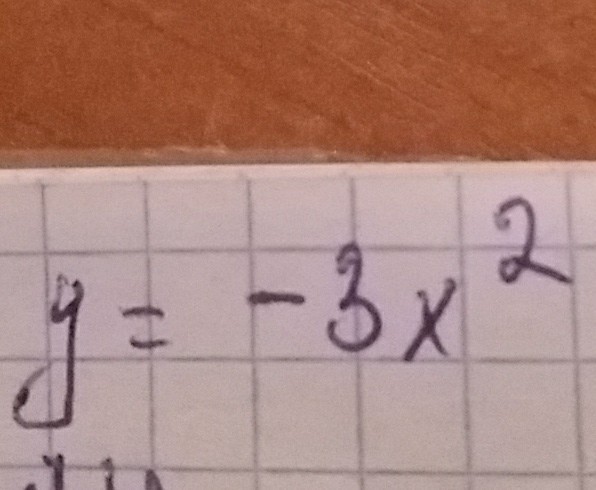 y = -3x²